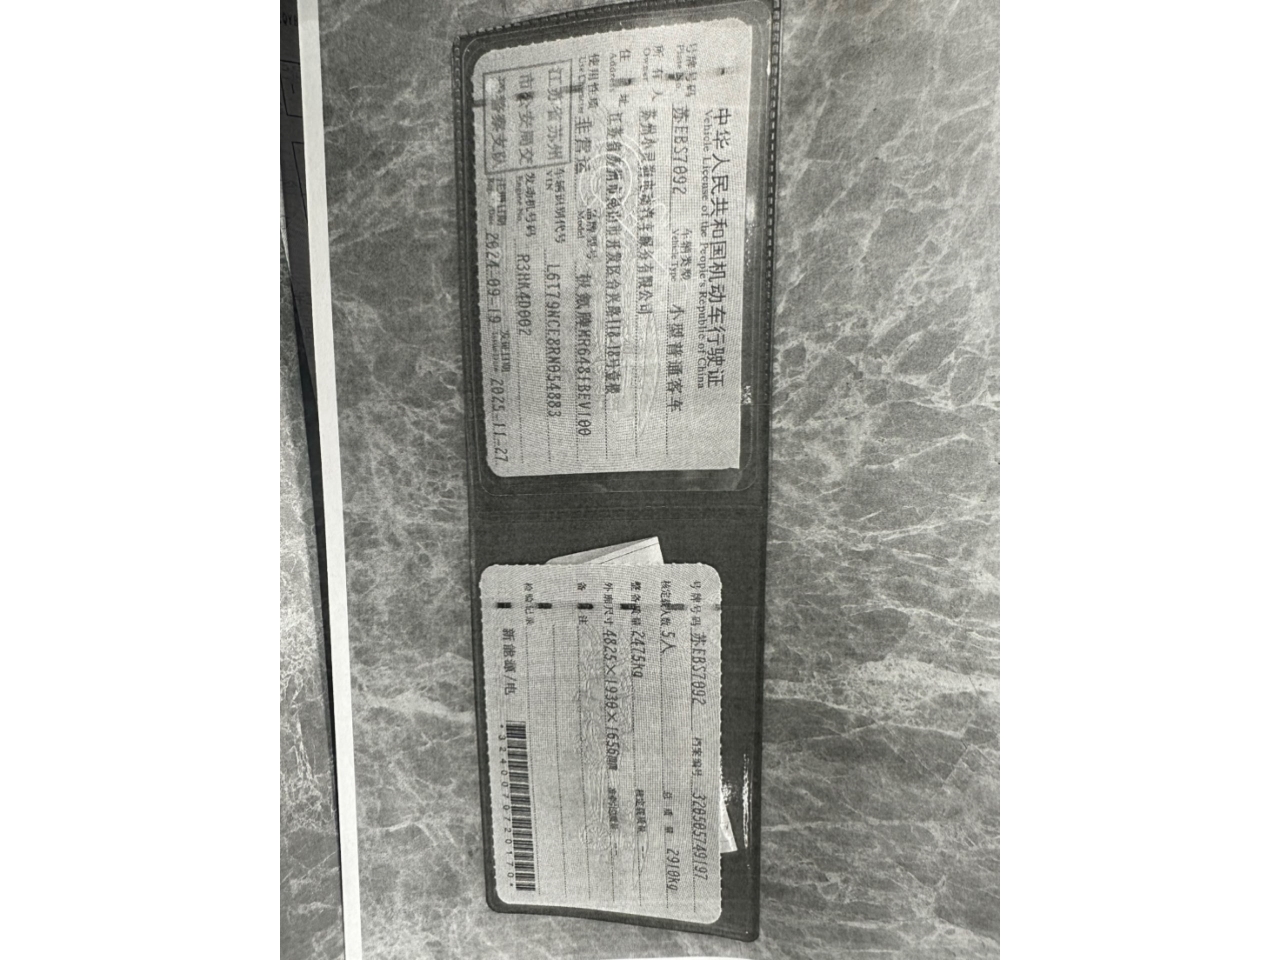 中华人民共和国机动车行驶证
Vehicle License of the People's Republic of China
号牌号码 苏EBS7092 车辆类型 小型普通客车
Plate No. Vehicle Type
所有人
Owner 汽车服务有限公司
住址 江苏省苏州市昆山市开发区
Address
使用性质 非营运 品牌型号 极氪牌MR6481BEV100
Use Character Model
江苏省苏州
市公安局交
警察支队
车辆识别代号 L6T79NCE8RN054883
VIN
发动机号码 R3HK4D002
Engine No.
注册日期 2024-09-19 发证日期 2025-11-27
号牌号码 苏EBS7092 档案编号 320505749197
核定载人数 5人 总质量 2910kg
整备质量 2475kg 核定载质量 --
外廓尺寸 4825×1930×1656mm 准牵引总质量 --
备注
检验记录
新能源/电
*3240070720170*